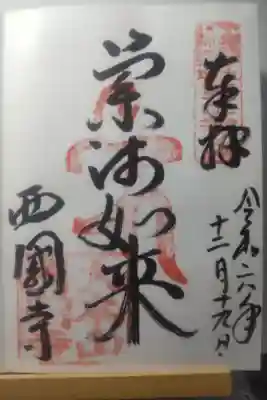 奉拝
令和六年
十二月十九日
薬師如来
西國寺